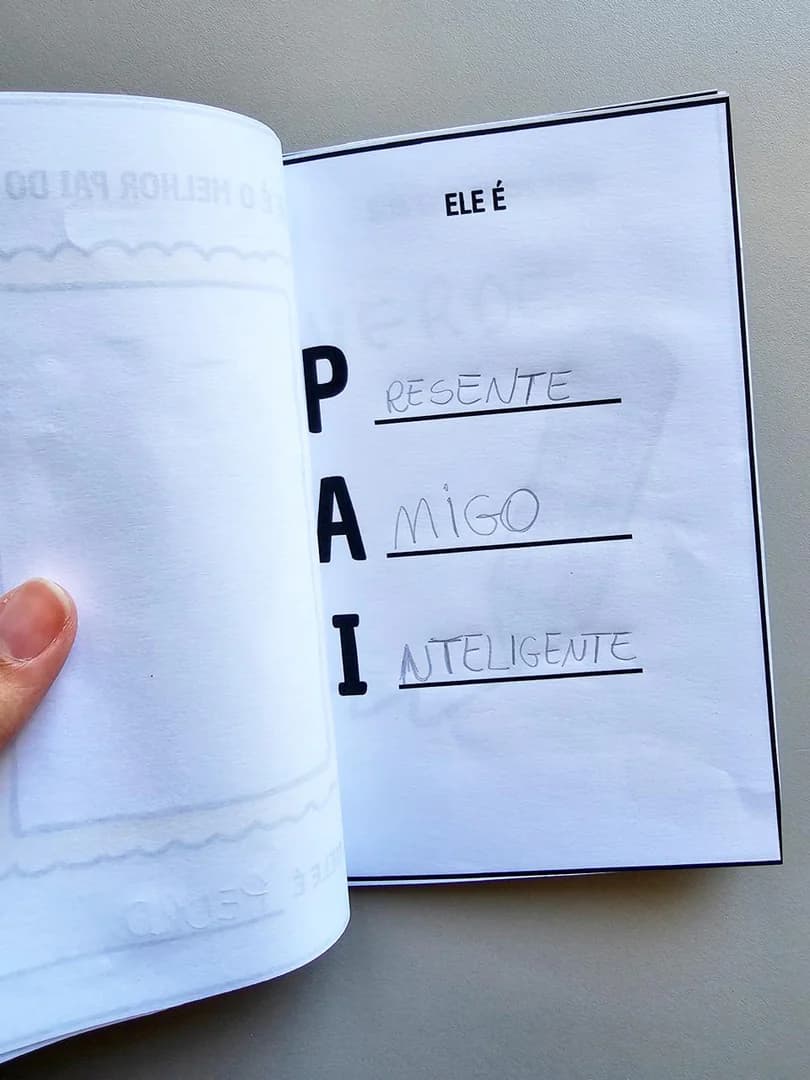 É O MELHOR PAI DO
ELE É
PRESENTE
AMIGO
INTELIGENTE